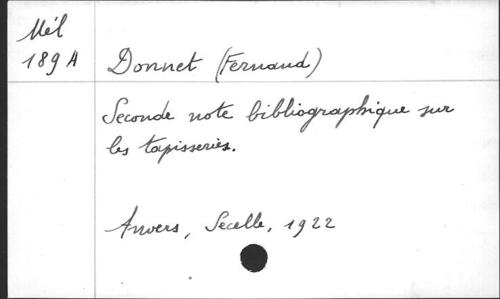 Mél
189 A
Donnet (Fernand)
Seconde note bibliographique sur
les tapisseries.
Anvers, Secelle, 1922